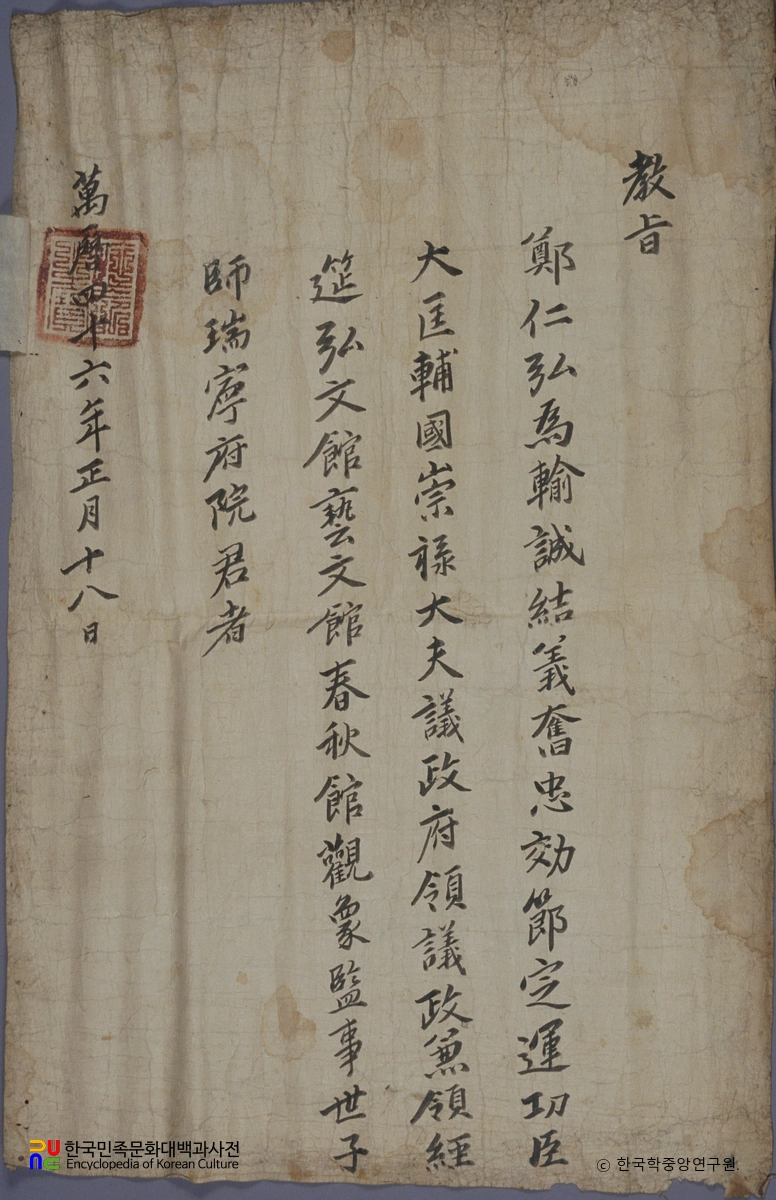 教旨
鄭仁弘爲輸誠結義奮忠効節定運功臣
大匡輔國崇祿大夫議政府領議政兼領經
筵弘文館藝文館春秋館觀象監事世子
師瑞寧府院君者
萬曆四十六年正月十八日
한국민족문화대백과사전
Encyclopedia of Korean Culture
© 한국학중앙연구원